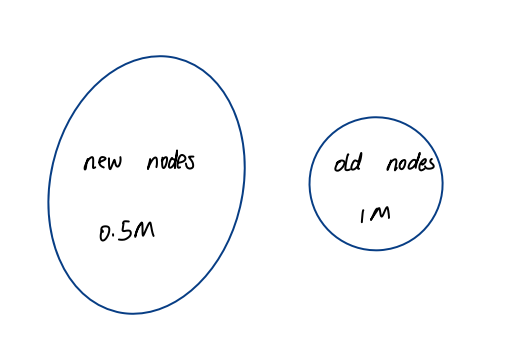 new nodes
0.5M
old nodes
1M